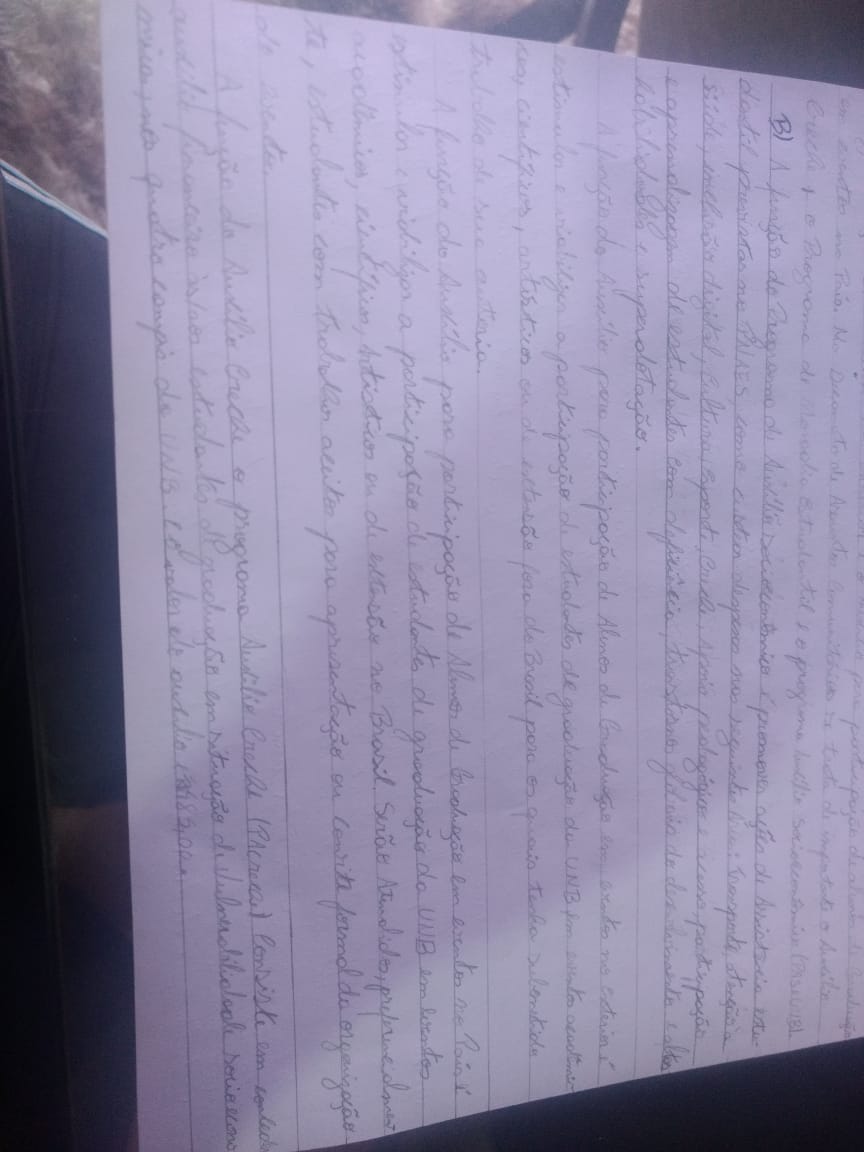 participação de alunos de Graduação
em eventos no País. No Decanato de Assuntos Comunitários se trata do o Auxílio
Creche, o Programa de Moradia Estudantil e o programa Auxílio Socioeconômico (PASeUNB).
B) A função do Programa de Auxílio Socioeconômico é promover ações de Assistência estu-
dantil previstas no PNAES como custear despesas nas seguintes áreas: transporte, atenção a
saúde, inclusão digital, cultura, esporte, creche, apoio pedagógico e acesso, participação
e aprendizagem de estudantes com deficiência, transtornos globais do desenvolvimento e altas
habilidades e superdotação.
A função do Auxílio para participação de Alunos de Graduação em eventos no exterior é
estimular e viabilizar a participação de estudantes de graduação da UNB, em evento acadêmi-
cos, científicos, artísticos ou de extensão fora do Brasil para os quais tenha submetido
trabalho de sua autoria.
A função do Auxílio para participação de Alunos de Graduação em eventos no País é
estimular e viabilizar a participação de estudantes de graduação da UNB em eventos
acadêmicos, científico, Artístico ou de extensão no Brasil. Serão Atendidos, preferencialmen-
te, estudantes com trabalhos aceitos para apresentação ou convite formal da organização
do evento.
A função do Auxílio Creche o programa Auxílio Creche consiste em conceder
auxílio financeiro aos estudantes de graduação em situação de Vulnerabilidade socioeconô-
mica, nos quatro campi da UNB, e o valor do auxílio é